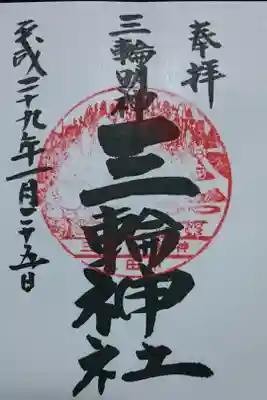 奉拝
三輪明神
三輪神社
平成二十九年一月二十五日